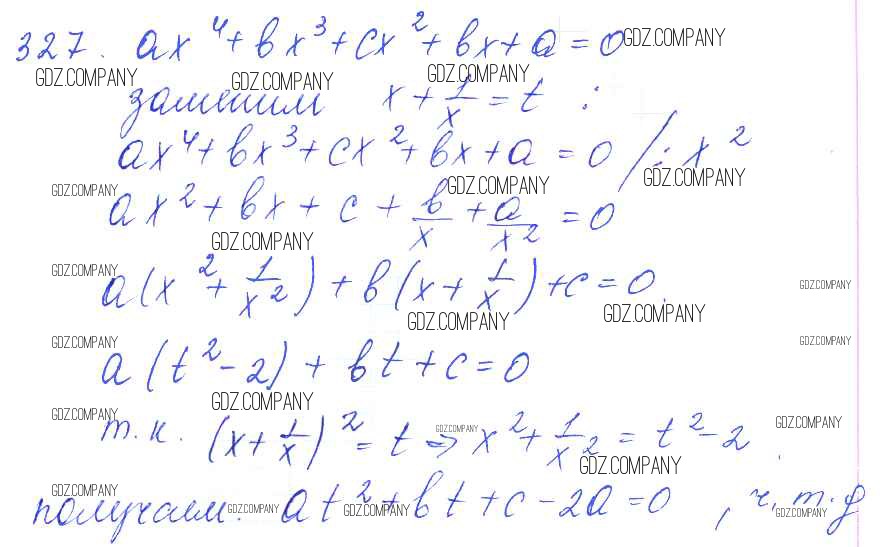 327. ax⁴ + bx³ + cx² + bx + a = 0 GDZ.COMPANY
GDZ.COMPANY GDZ.COMPANY GDZ.COMPANY
заменим x + 1/x = t :
ax⁴ + bx³ + cx² + bx + a = 0 / : x²
GDZ.COMPANY GDZ.COMPANY GDZ.COMPANY
ax² + bx + c + b/x + a/x² = 0
GDZ.COMPANY
GDZ.COMPANY GDZ.COMPANY
a(x² + 1/x²) + b(x + 1/x) + c = 0.
GDZ.COMPANY GDZ.COMPANY
GDZ.COMPANY GDZ.COMPANY
a(t² - 2) + bt + c = 0
GDZ.COMPANY
GDZ.COMPANY GDZ.COMPANY GDZ.COMPANY
т.к. (x + 1/x)² = t ⇒ x² + 1/x² = t² - 2
GDZ.COMPANY
GDZ.COMPANY GDZ.COMPANY GDZ.COMPANY GDZ.COMPANY
получаем: at² + bt + c - 2a = 0, ч.т.д